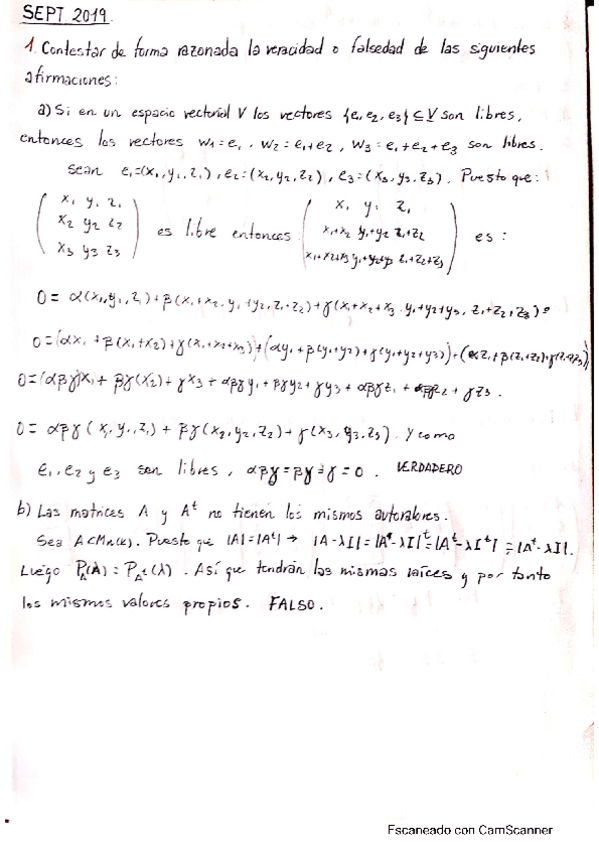 SEPT. 2019.
1. Contestar de forma razonada la veracidad o falsedad de las siguientes
afirmaciones:
a) Si en un espacio vectorial V los vectores {e₁, e₂, e₃} ⊆ V son libres,
entonces los vectores w₁ = e₁, w₂ = e₁+e₂, w₃ = e₁+e₂+e₃ son libres.
Sean e₁=(x₁,y₁,z₁), e₂=(x₂,y₂,z₂), e₃=(x₃,y₃,z₃). Puesto que:
x₁ y₁ z₁
x₂ y₂ z₂
x₃ y₃ z₃
es libre entonces
x₁ y₁ z₁
x₁+x₂ y₁+y₂ z₁+z₂
x₁+x₂+x₃ y₁+y₂+y₃ z₁+z₂+z₃
es:
0 = α(x₁,y₁,z₁)+β(x₁+x₂, y₁+y₂, z₁+z₂)+γ(x₁+x₂+x₃, y₁+y₂+y₃, z₁+z₂+z₃) =
0 = (αx₁+β(x₁+x₂)+γ(x₁+x₂+x₃))+(αy₁+β(y₁+y₂)+γ(y₁+y₂+y₃))+
0 = (αβγ)x₁ + βγ(x₂)+γx₃ + αβγy₁ + βγy₂ + γy₃ + αβγz₁ + + γz₃.
0 = αβγ(x₁,y₁,z₁) + βγ(x₂,y₂,z₂)+γ(x₃,y₃,z₃). Y como
e₁, e₂ y e₃ son libres, αβγ=βγ=γ=0. VERDADERO
b) Las matrices A y Aᵗ no tienen los mismos autovalores.
Sea A∈Mn(K). Puesto que |A|=|Aᵗ| → |A-λI|=|A-λI|ᵗ=|Aᵗ-λIᵗ|=|Aᵗ-λI|.
Luego P_A(λ)=P_Aᵗ(λ). Así que tendrán las mismas raíces y por tanto
los mismos valores propios. FALSO.
Escaneado con CamScanner